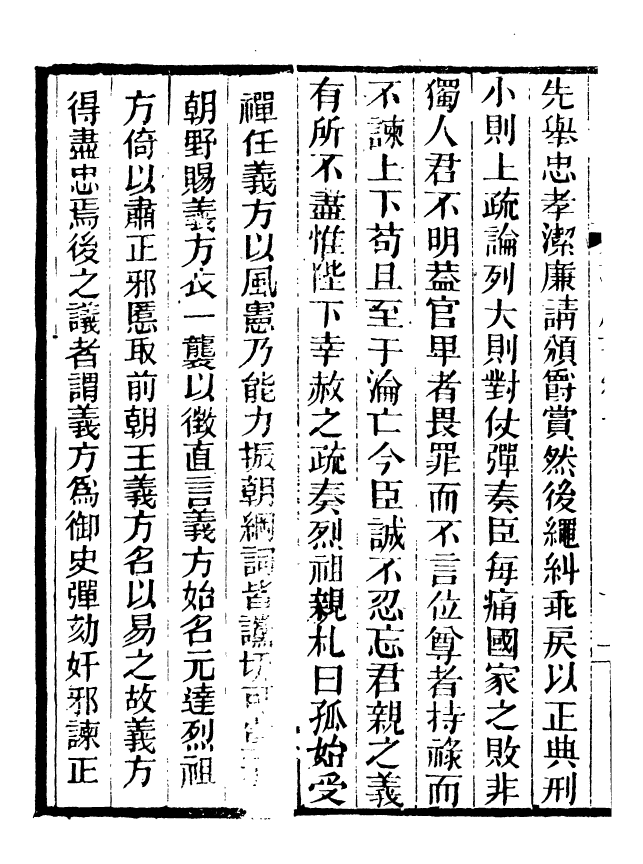 先舉忠孝潔廉請頒爵賞然後繩糾乖戾以正典刑
小則上疏論列大則對仗彈奏臣每痛國家之敗非
獨人君不明葢官卑者畏罪而不言位尊者持祿而
不諫上下苟且至于淪亡今臣誠不忍忘君親之義
有所不盡惟陛下幸赦之疏奏烈祖親札曰孤始受
禪任義方以風憲乃能力振朝綱詞皆讜切可
朝野賜義方衣一襲以徵直言義方始名元達烈祖
方倚以肅正邪慝取前朝王義方名以易之故義方
得盡忠焉後之議者謂義方爲御史彈劾奸邪諫正